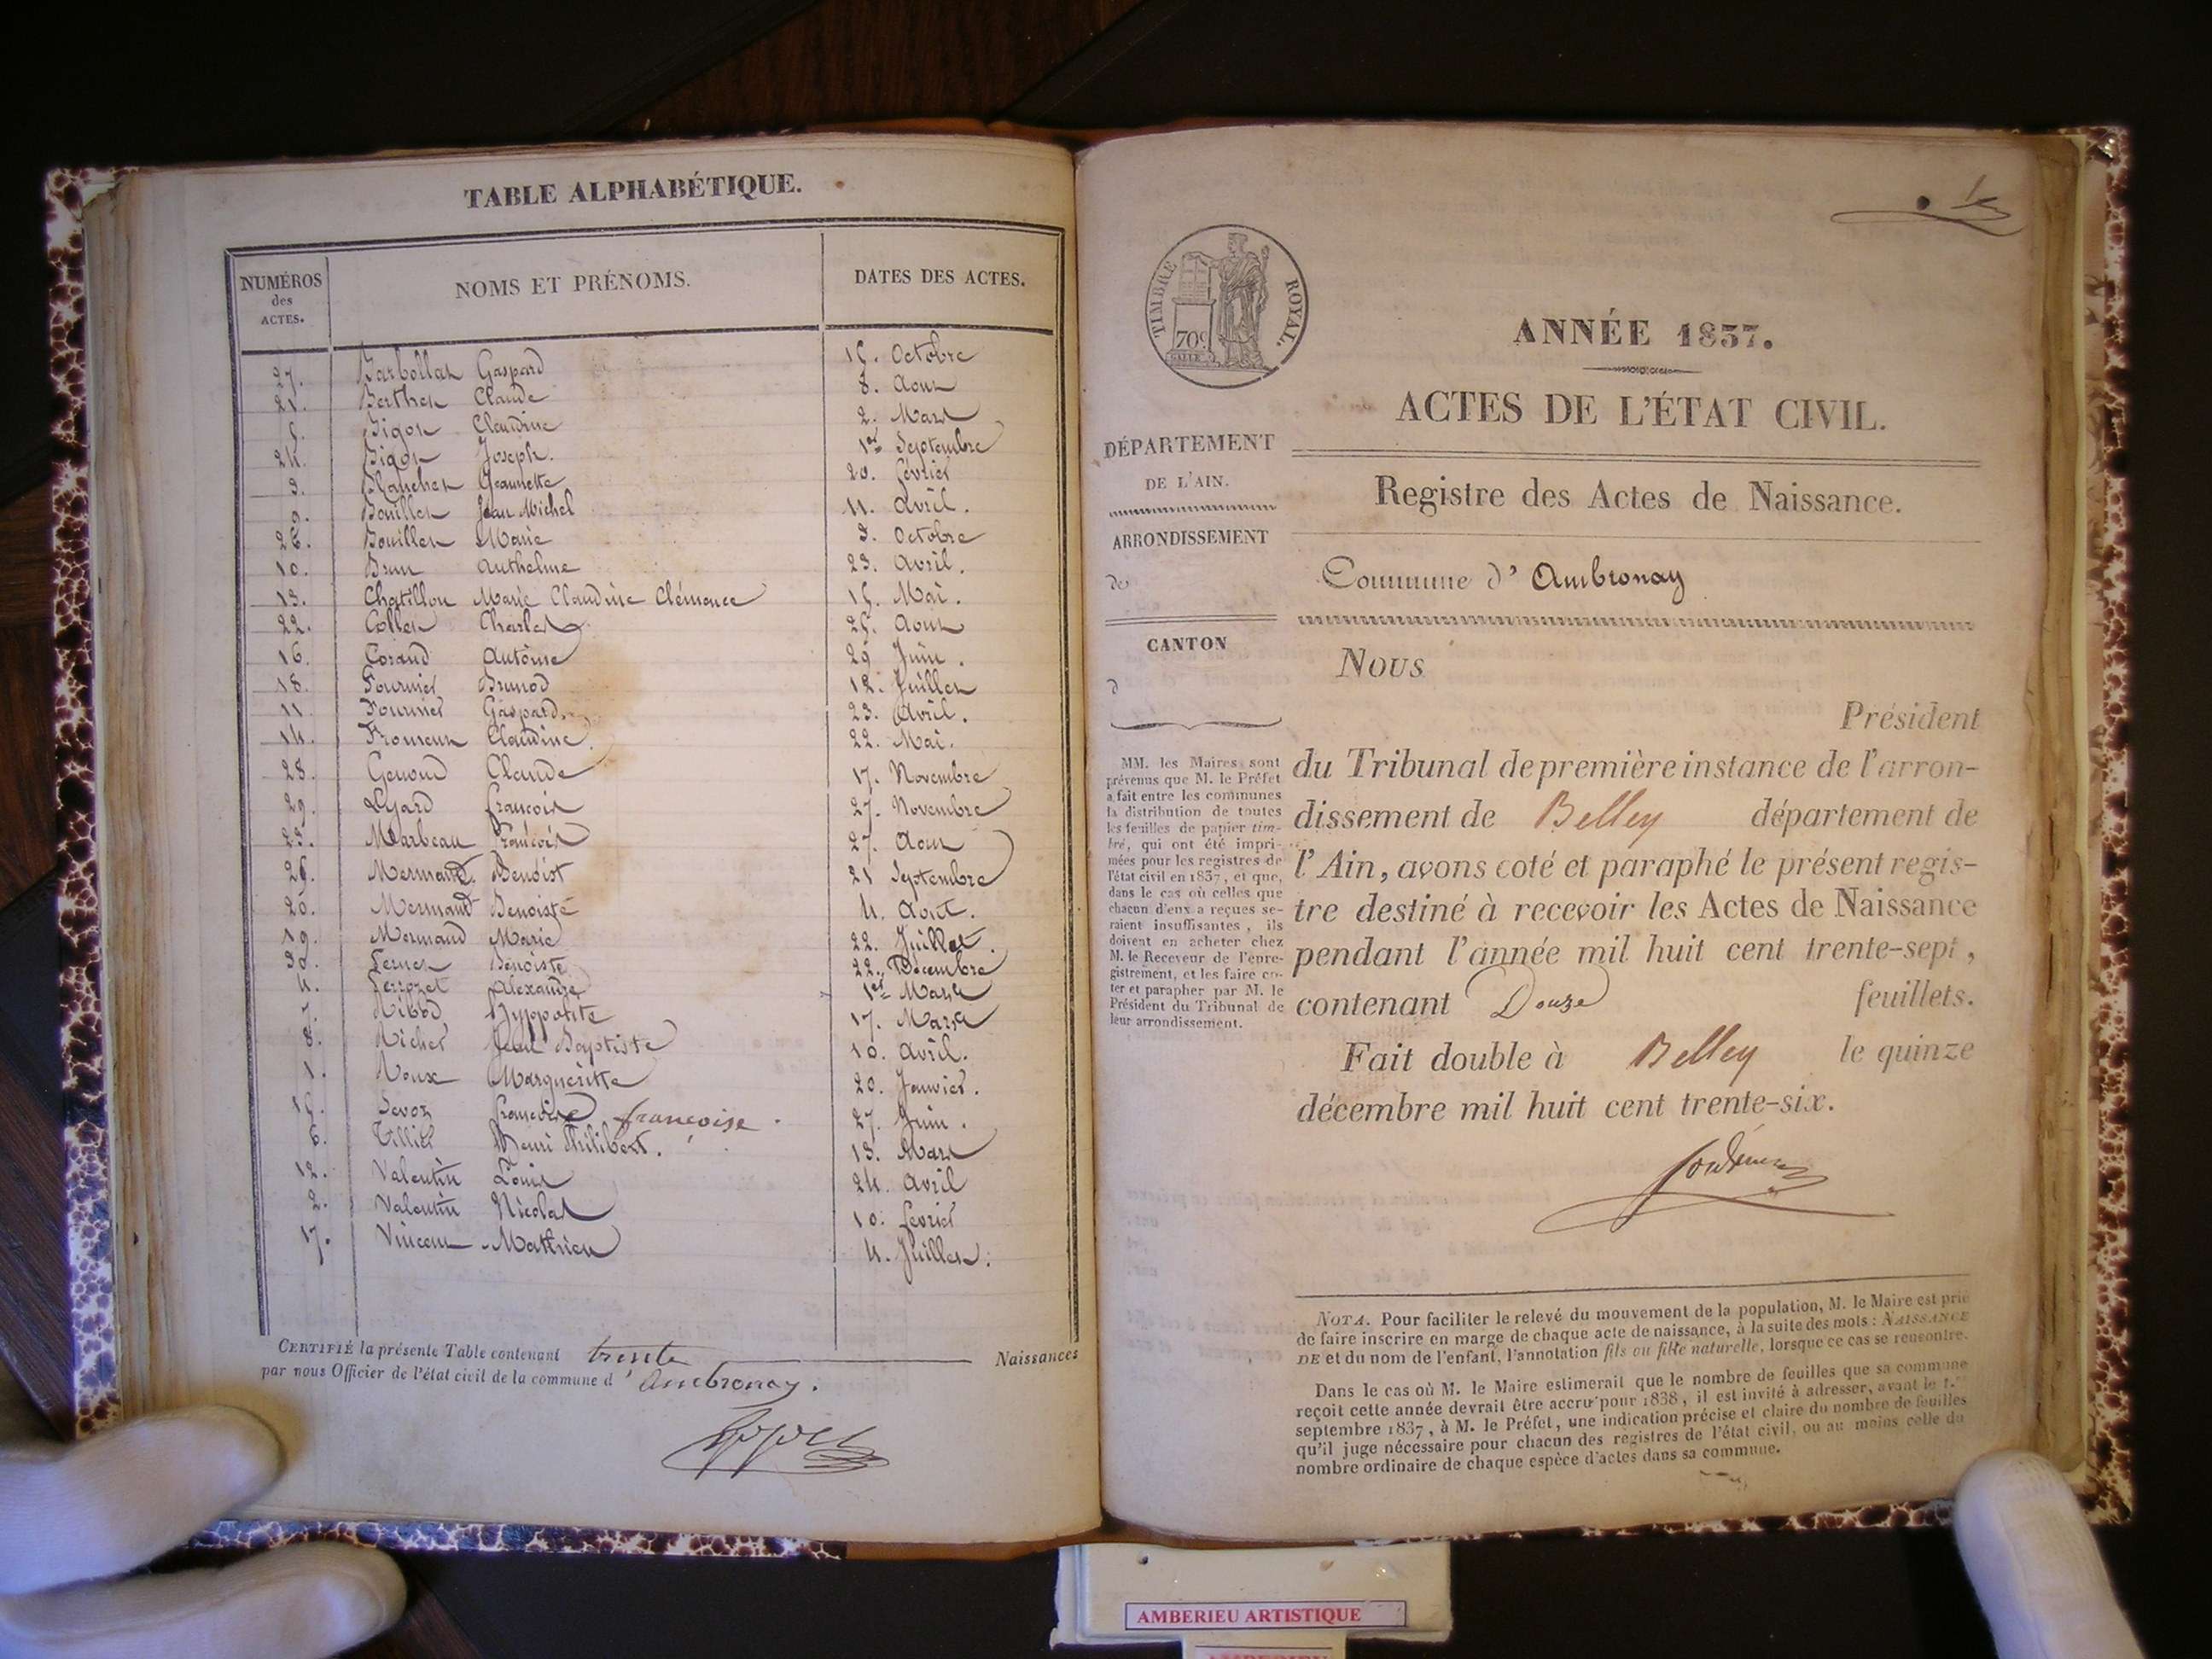 TABLE ALPHABÉTIQUE.
NUMÉROS des ACTES.
NOMS ET PRÉNOMS.
DATES DES ACTES.
27. Gaspard 15. Octobre
21. Claude 8. Aout
5. Claudine 2. Mars
24. Joseph. 1er Septembre
3. 20. février
9. Jean Michel 11. Avril.
26. Marie 3. Octobre
10. Brun Anthelme 23. Avril.
13. Chatillon Marie Claudine Clémence 15. Mai.
22. Collet Charles 25. Aout
16. Corand Antoine 29 Juin.
18. Fournier Brunod 12. Juillet
11. Fournier Gaspard. 23. Avril.
14. Froment Claudine. 22. Mai.
28. Genoud Claude 17. Novembre
29. Lyard françois 27. Novembre
23. Marbeau François 27. Aout
25. Mermand. Benoist 21 Septembre
20. Mermand Benoiste 4. Aout.
19. Mermand Marie 22. Juillet.
30. Benoiste 22. Décembre
4. Alexandre 1er Mars
7. Hyppolite 17. Mars
8. Richer Jean Baptiste 10. Avril.
1. Roux Margueritte 20. Janvier.
15. françoise. 27. Juin.
6. Henri Philibert. 13. Mars
12. Valentin Louis 24. Avril
2. Valentin Nicolas 10. fevrier
17. Vincent Mathieu 4. Juillet.
CERTIFIÉ la présente Table contenant trente Naissances
par nous Officier de l'état civil de la commune d'Ambronay.
TIMBRE ROYAL.
70c
ANNÉE 1837.
ACTES DE L'ÉTAT CIVIL.
DÉPARTEMENT
DE L'AIN.
Registre des Actes de Naissance.
ARRONDISSEMENT
de
Commune d'Ambronay
CANTON
d
Nous
Président
du Tribunal de première instance de l'arron-
dissement de Belley département de
l'Ain, avons coté et paraphé le présent regis-
tre destiné à recevoir les Actes de Naissance
pendant l'année mil huit cent trente-sept,
contenant Douze feuillets.
Fait double à Belley le quinze
décembre mil huit cent trente-six.
MM. les Maires sont
prévenus que M. le Préfet
a fait entre les communes
la distribution de toutes
les feuilles de papier tim-
bré, qui ont été impri-
mées pour les registres de
l'état civil en 1837, et que,
dans le cas où celles que
chacun d'eux a reçues se-
raient insuffisantes, ils
doivent en acheter chez
M. le Receveur de l'enre-
gistrement, et les faire co-
ter et parapher par M. le
Président du Tribunal de
leur arrondissement.
NOTA. Pour faciliter le relevé du mouvement de la population, M. le Maire est prié
de faire inscrire en marge de chaque acte de naissance, à la suite des mots : NAISSANCE
DE et du nom de l'enfant, l'annotation fils ou fille naturelle, lorsque ce cas se rencontre.
Dans le cas où M. le Maire estimerait que le nombre de feuilles que sa commune
reçoit cette année devrait être accru pour 1838, il est invité à adresser, avant le 1.er
septembre 1837, à M. le Préfet, une indication précise et claire du nombre de feuilles
qu'il juge nécessaire pour chacun des registres de l'état civil, ou au moins celle du
nombre ordinaire de chaque espèce d'actes dans sa commune.
AMBERIEU ARTISTIQUE